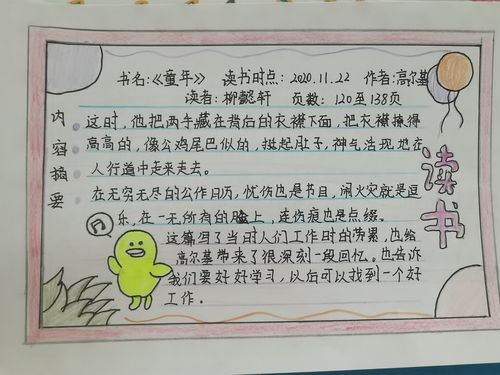 书名:《童年》 读书时点: 2020.11.22 作者:高尔基
读者:柳懿轩 页数: 120至138页
内容摘要
这时,他把两手藏在背后的衣襟下面,把衣襟撩得
高高的,像公鸡尾巴似的,挺起肚子,神气活现地在
人行道中走来走去。
在无穷无尽的公作日历,忧伤也是节日,闹火灾就是逗
乐,在一无所有的脸上,连伤痕也是点缀。
这篇写了当时人们工作时的劳累,也给
高尔基带来了很深刻一段回忆。也告诉
我们要好好学习,以后可以找到一个好
工作。
读书